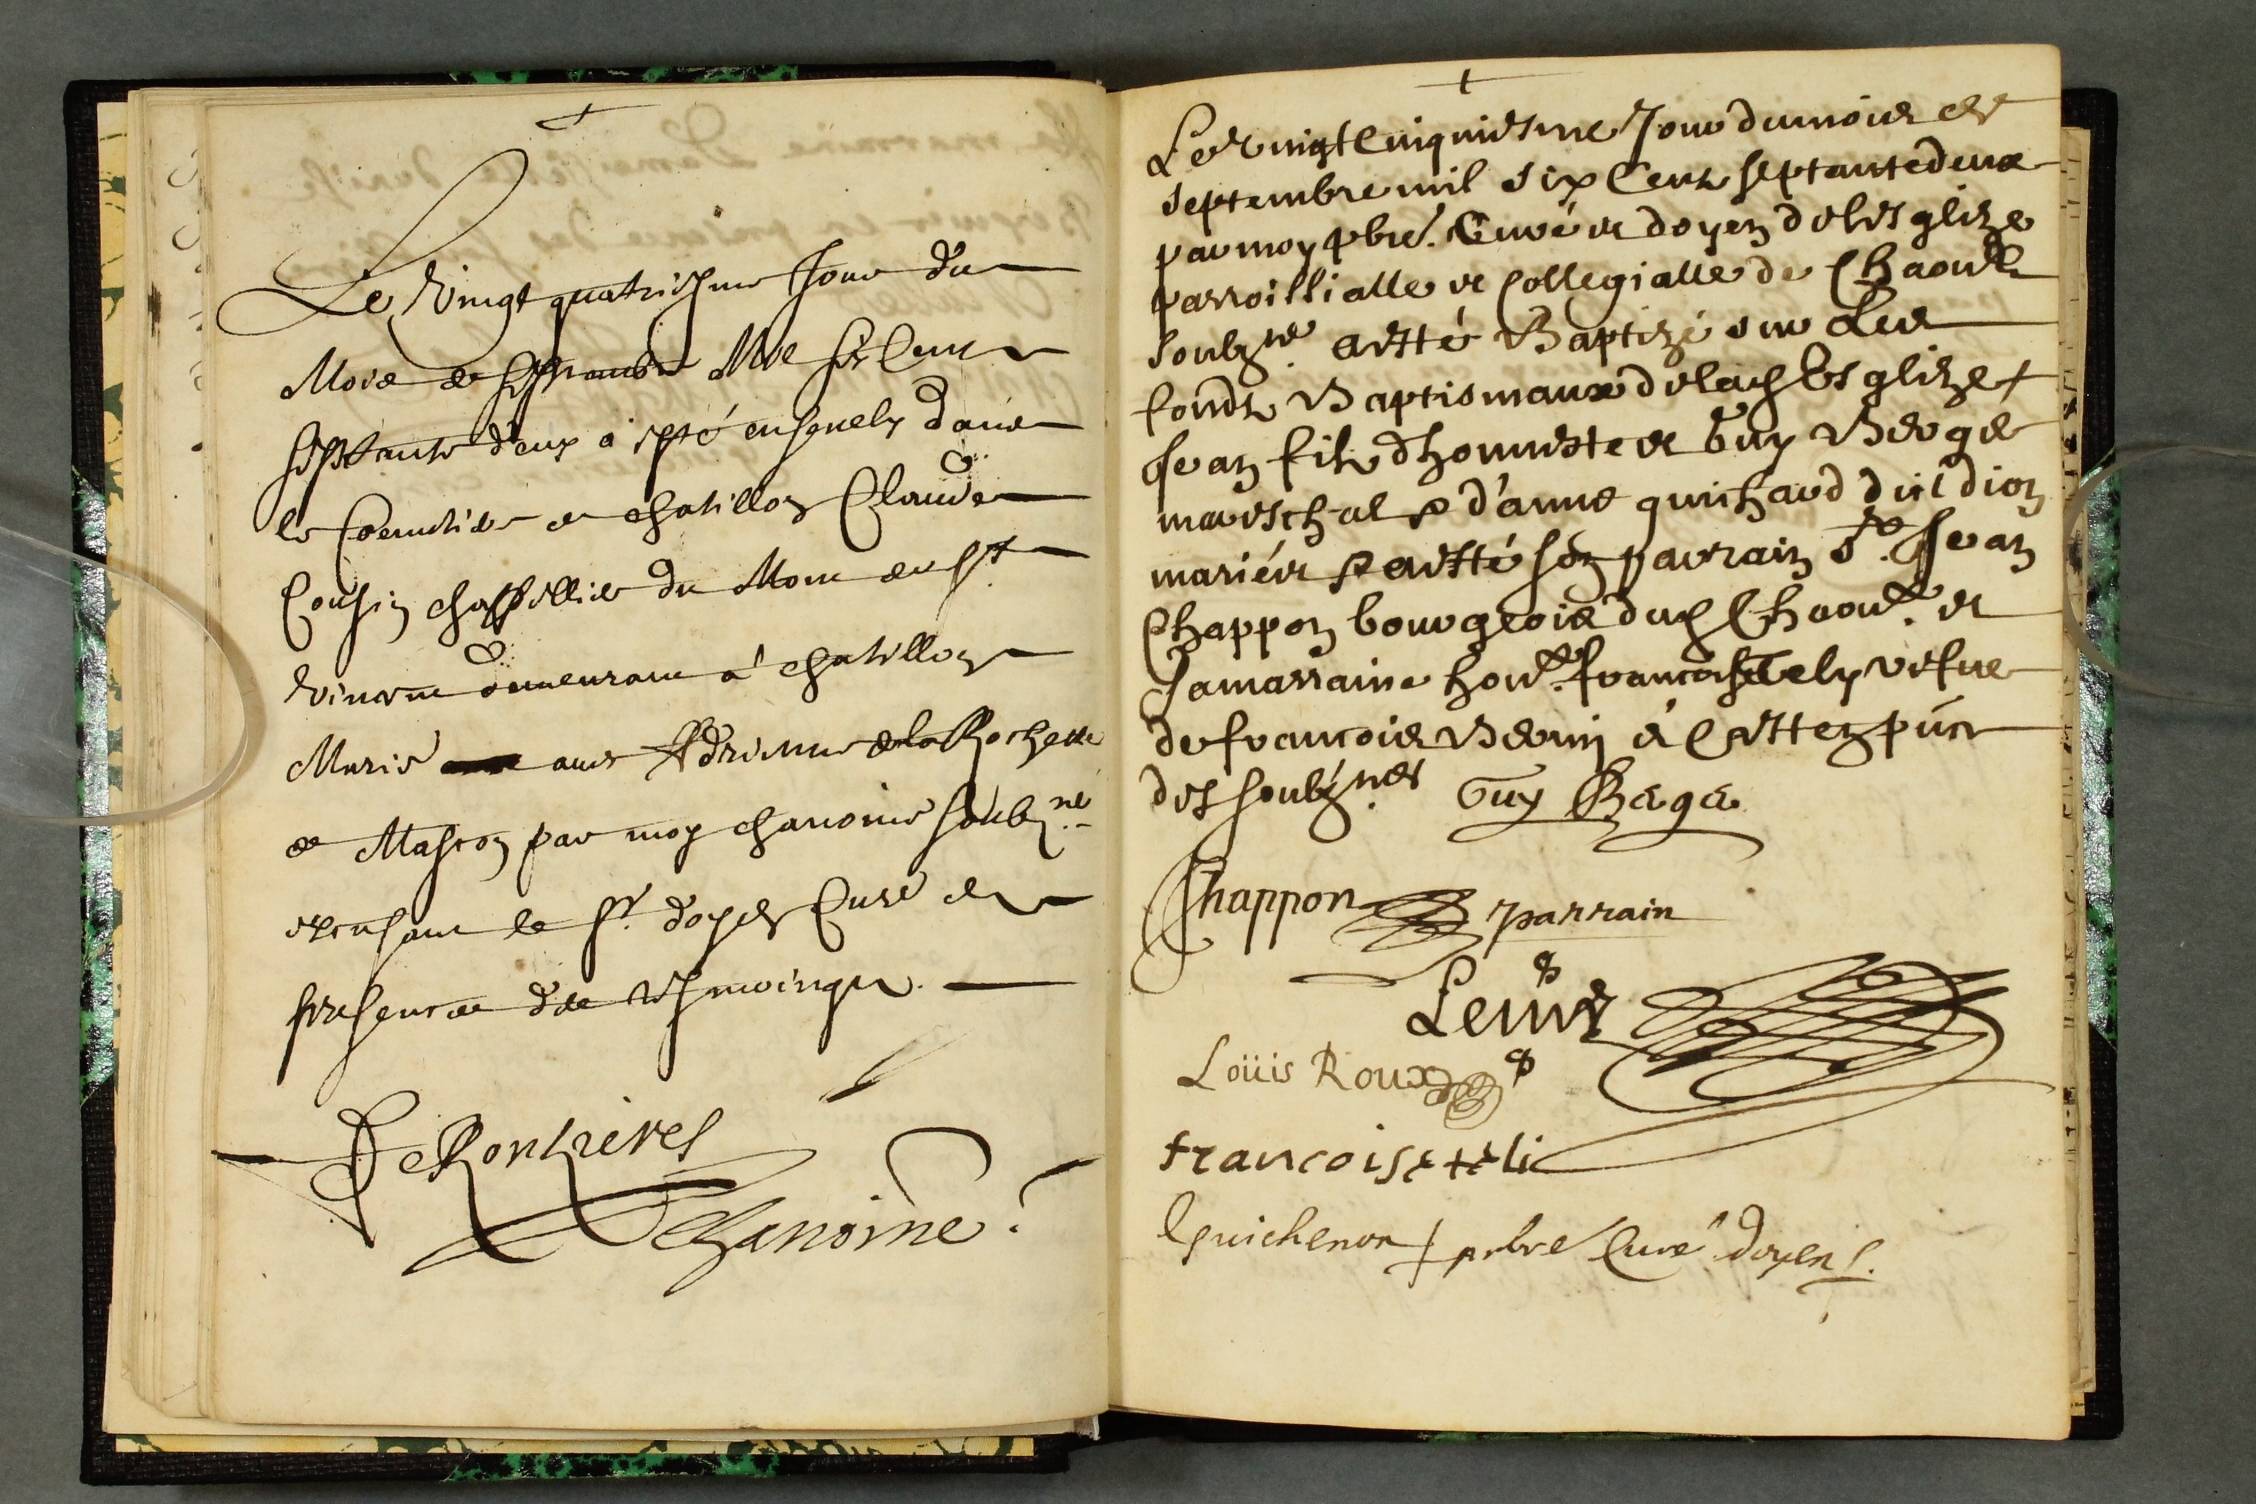 Le vingt quatriesme Jour du
Mois de Septembre Mil six Cent
septante deux a esté ensepvely dans
le Coemitier de chatillon Claude
Cousin chappellier du
demeurant a chatillon
Marié avec Adrienne de la Rochette
de Mascon par moy chanoine soubzné
le Sr. doyen Curé en
presence des tesmoings.
chanoine.
Le vingt cinquiesme Jour du mois de
septembre mil six Cent septante deux
par moy pbre. Curé et doyen de lesglize
parroissialle et Collegialle de Chaon
soubzné a esté Baptizé sur Les
fondz Baptismaux de lad Esglize
Jean filz dhonneste Guy Berge
mareschal & d'anne
mariés & a esté son parrain Sr. Jean
Chappon bourgeois dud Chaon et
sa marraine hon. francoise Tely vefve
de francois Bernin et
des soubznés Guy Berge
Chappon parrain
Louis Roux
francoise teli
Guichenon pbre Curé doyen